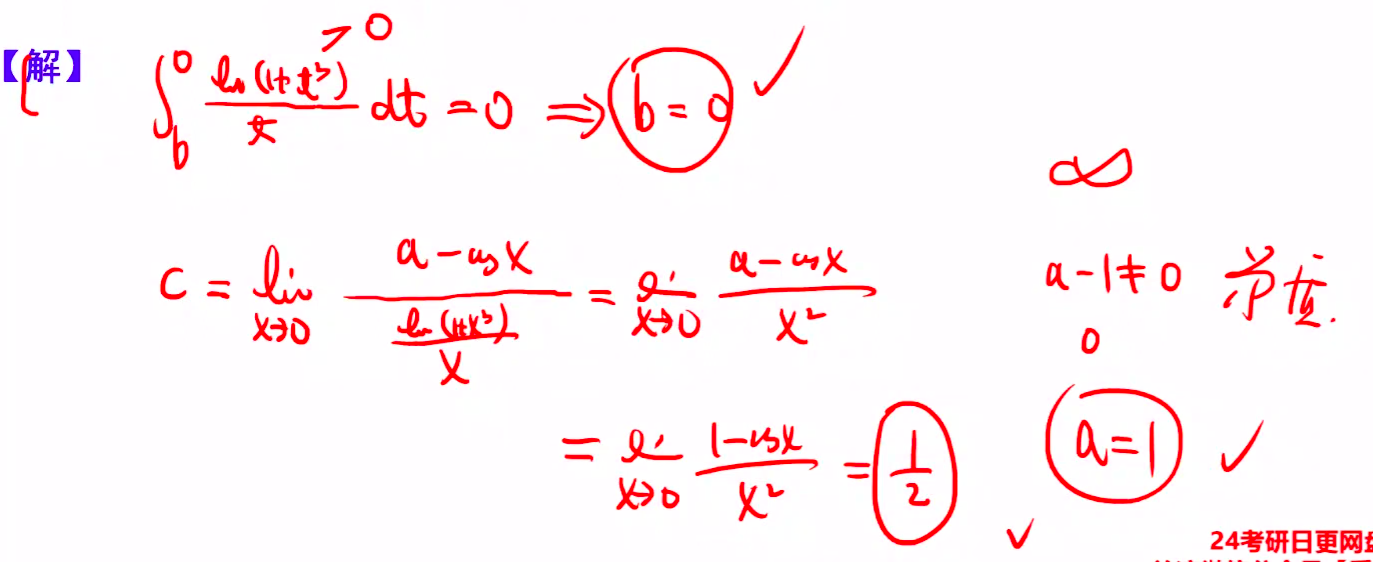 【解】 ∫_b^0 ln(1+t³)/t dt = 0 ⇒ b = 0 ✓
> 0
∞
c = lim_{x→0} (a - cos x)/(ln(1+x³)/x) = lim_{x→0} (a - cos x)/x²
a - 1 ≠ 0 矛盾.
0
= lim_{x→0} (1 - cos x)/x² = 1/2 ✓
a = 1 ✓
24考研日更网盘